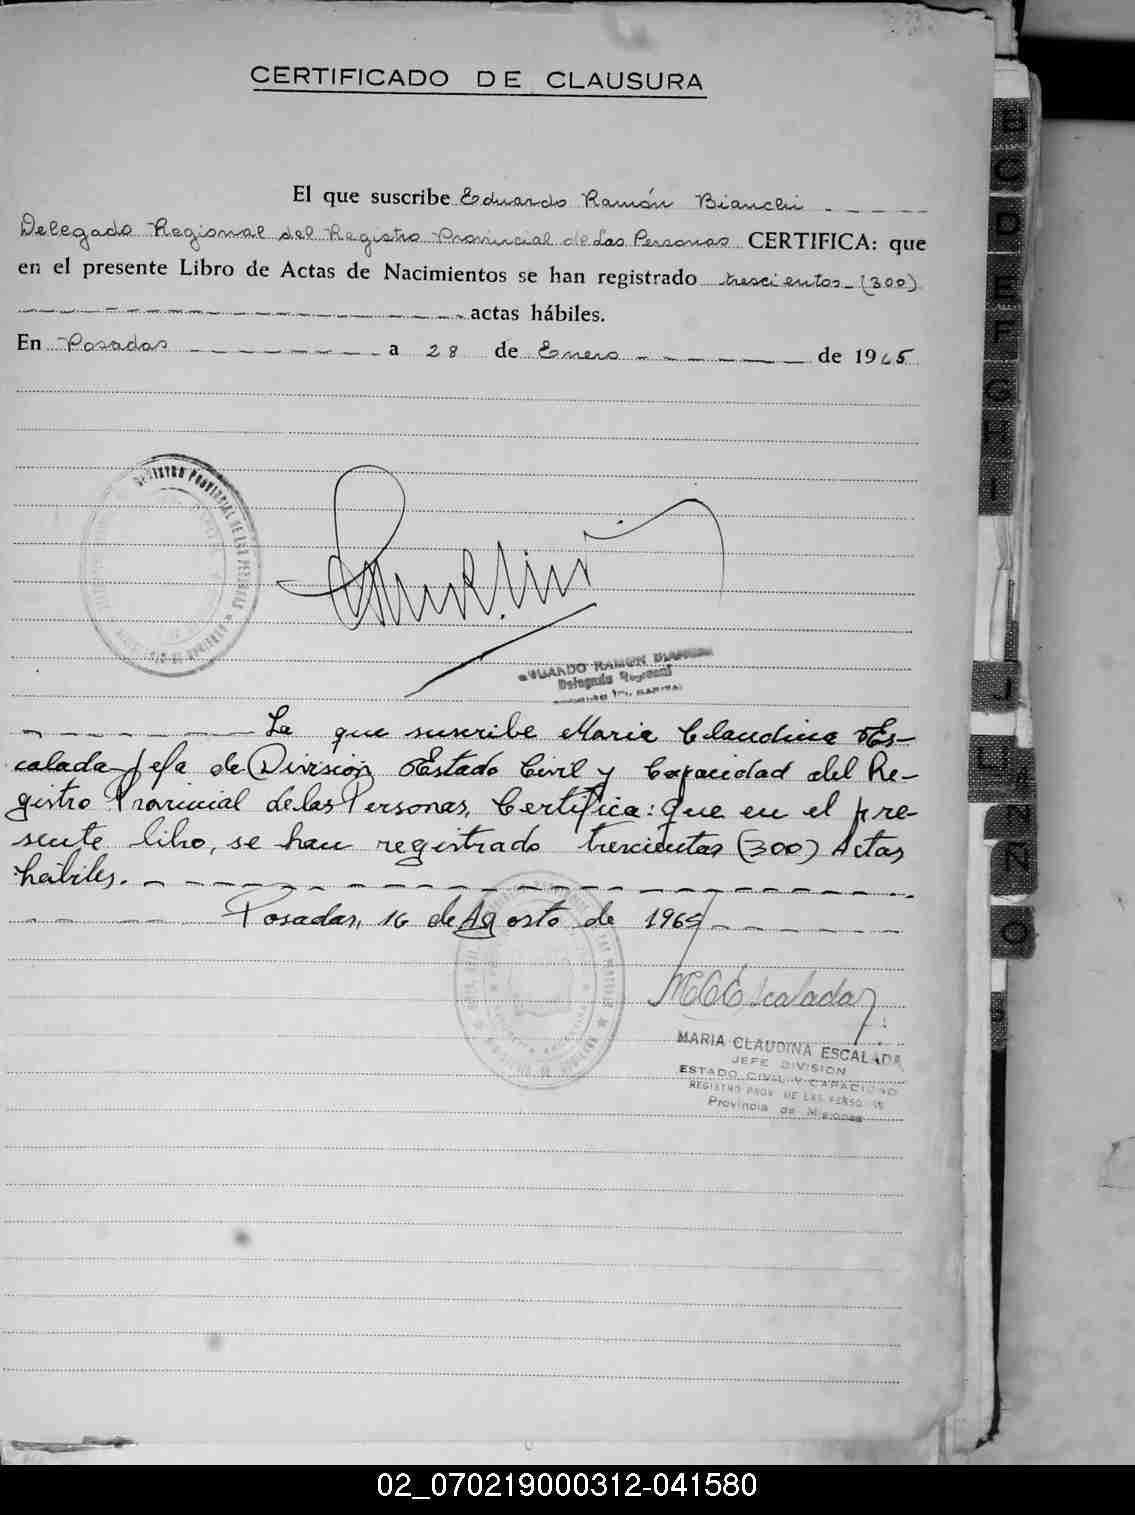 CERTIFICADO DE CLAUSURA
El que suscribe Eduardo Ramón Bianchi
Delegado Regional del Registro Provincial de Las Personas CERTIFICA: que
en el presente Libro de Actas de Nacimientos se han registrado trescientos (300)
actas hábiles.
En Posadas a 28 de Enero de 1965
REGISTRO PROVINCIAL DE LAS PERSONAS
EDUARDO RAMON BIANCHI
Delegado Regional
La que suscribe Maria Claudina Es-
calada Jefa de División Estado Civil y Capacidad del Re-
gistro Provincial de las Personas, Certifica: que en el pre-
sente libro, se han registrado trescientas (300) Actas
hábiles.
Posadas, 16 de Agosto de 1965
MCEscalada
MARIA CLAUDINA ESCALADA
JEFE DIVISION
ESTADO CIVIL Y CAPACIDAD
REGISTRO PROV. DE LAS PERSONAS
Provincia de Misiones
B
C
D
E
F
G
H
I
J
LL
N
Ñ
O
02_070219000312-041580